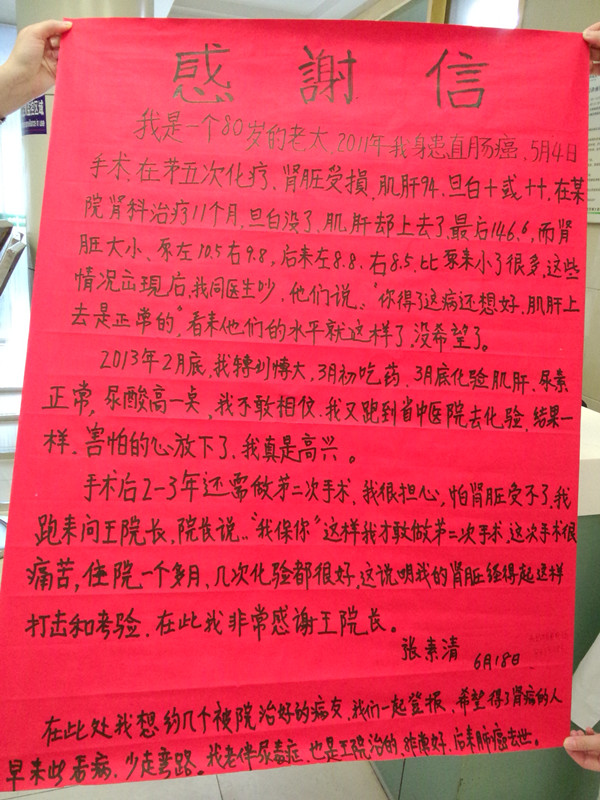 感謝信
我是一个80岁的老太,2011年我身患直肠癌,5月4日
手术,在第五次化疗,肾脏受損,肌肝94.旦白+或++,在某
院肾科治疗11个月,旦白没了,肌肝却上去了,最后146.6,而肾
脏大小、原左10.5右9.8,后来左8.8.右8.5.比原来小了很多,这些
情况出現后,我同医生吵,他们说:"你得了这病还想好,肌肝上
去是正常的",看来他们的水平就这样了,没希望了。
2013年2月底,我转到博大,3月初吃药,3月底化验肌肝、尿素
正常,尿酸高一臭,我不敢相佼,我又跑到省中医院去化验,结果一
样.害怕的心放下了,我真是高兴。
手术后2-3年还需做第二次手术,我很担心,怕肾脏受不了,我
跑来问王院长,院长说:"我保你"这样我才敢做第二次手术,这次手术很
痛苦,住院一个多月,几次化验都很好,这说明我的肾脏经得起这样
打击和考验.在此我非常感谢王院长。
张素清 6月18日
在此处我想约几个被院治好的病友,我们一起登报,希望得了肾病的人
早来此看病,少走弯路。我老伴尿毒症,也是王院治的,非常好,后来肺癌去世。